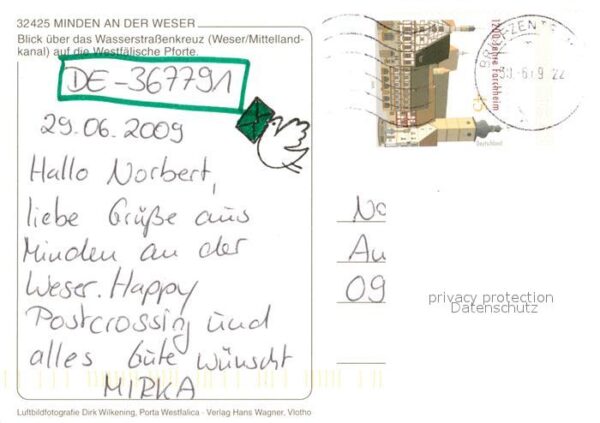 32425 MINDEN AN DER WESER
Blick über das Wasserstraßenkreuz (Weser/Mittelland-
kanal) auf die Westfälische Pforte.
DE-367791
29.06.2009
Hallo Norbert,
liebe Grüße aus
Minden an der
Weser. Happy
Postcrossing und
alles Gute wünscht
MIRKA
Luftbildfotografie Dirk Wilkening, Porta Westfalica · Verlag Hans Wagner, Vlotho
1200 Jahre Forchheim
Deutschland
BRIEFZENT
30.6.09.22
No
Au
09
privacy protection
Datenschutz